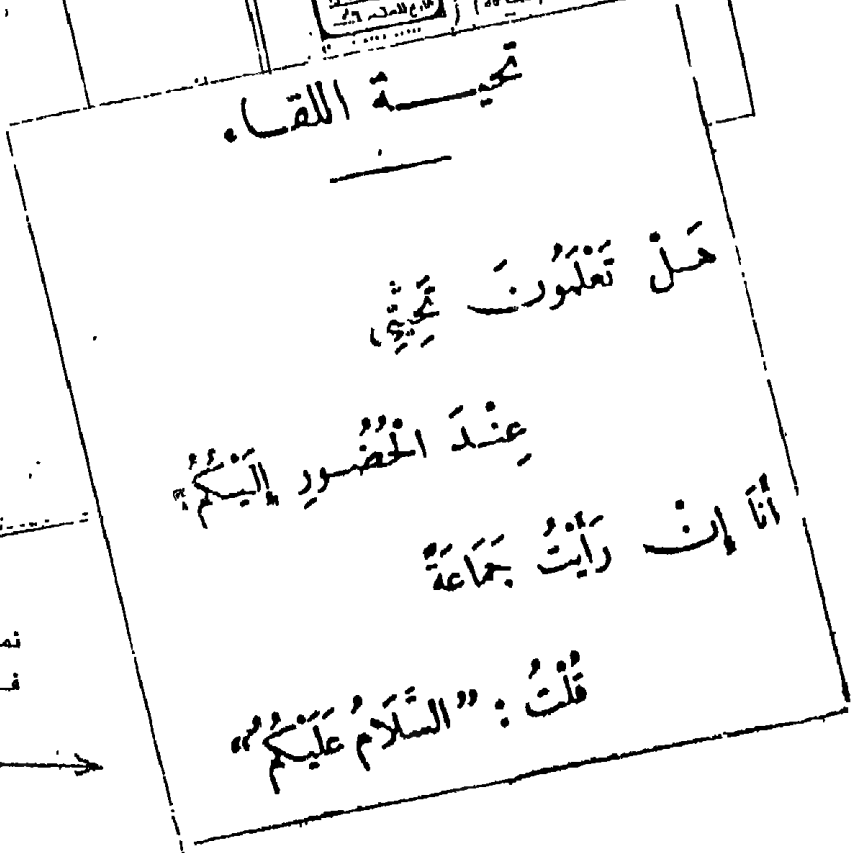 تحيــة اللقــاء
هَــلْ تَعْلَمُونَ تَحِيَّتِي
عِنْــدَ الْحُضُــورِ إِلَيْكُمُ
أَنَا إِنْ رَأَيْتُ جَمَاعَةً
قُلْتُ : "السَّلَامُ عَلَيْكُمُ"